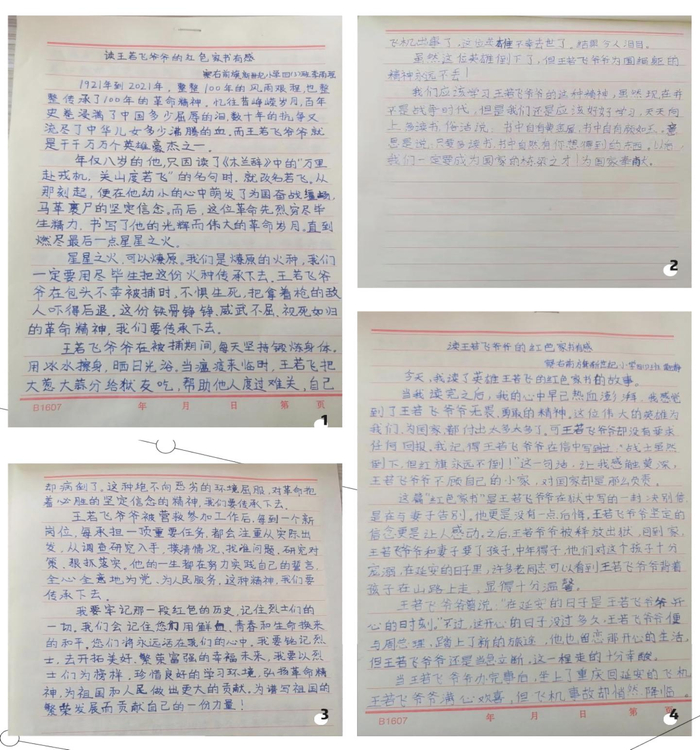 读王若飞爷爷的红色家书有感
察右前旗新世纪小学四(1)班
1921年到2021年，整整100年的风雨艰程，也整
整传承了100年的革命精神。忆往昔峥嵘岁月，百年
史卷浸满了中国多少屈辱的泪，数十年的抗争又
流尽了中华儿女多少沸腾的血，而王若飞爷爷就
是千千万万个英雄豪杰之一。
年仅八岁的他，只因读了《木兰辞》中的“万里
赴戎机，关山度若飞”的名句时，就改名若飞。从
那刻起，便在他幼小的心中萌发了为国奋战疆场，
马革裹尸的坚定信念。而后，这位革命先烈穷尽毕
生精力，书写了他的光辉而伟大的革命岁月。直到
燃尽最后一点星星之火。
星星之火，可以燎原。我们是燎原的火种，我们
一定要用尽毕生把这份火种传承下去。王若飞爷
爷在包头不幸被捕时，不惧生死，把拿着枪的敌
人吓得后退。这份铁骨铮铮，威武不屈，视死如归
的革命精神，我们要传承下去。
王若飞爷爷在被捕期间，每天坚持锻炼身体，
用冰水擦身，晒日光浴。当瘟疫来临时，王若飞把
大葱大蒜分给狱友吃，帮助他人度过难关，自己
B1607 年 月 日 第 页
1
飞机出事了，这位英雄不幸去世了。结果令人泪目。
虽然这位英雄倒下了，但王若飞爷爷为国捐躯的
精神永远不丢！
我们应该学习王若飞爷爷的这种精神，虽然现在并
不是战争时代，但是我们还是应该好好学习，天天向
上，多读书，俗话说：书中自有黄金屋，书中自有颜如玉，意
思是说，只要多读书，书中自然有你想得到的东西。以后，
我们一定要成为国家的栋梁之才！为国家奉献。
2
却病倒了。这种绝不向恶劣的环境屈服，对革命抱
着必胜的坚定信念的精神，我们要传承下去。
王若飞爷爷被营救参加工作后，每到一个新
岗位，每承担一项重要任务，都会注重从实际出
发，从调查研究入手，摸清情况，找准问题，研究对
策，狠抓落实。他的一生都在努力实践自己的誓言，
全心全意地为党，为人民服务，这种精神，我们要
传承下去。
我要牢记那一段红色的历史，记住烈士们的
一切。我们会记住您们用鲜血、青春和生命换来
的和平，您们将永远活在我们的心中。我要铭记烈
士，去开拓美好、繁荣富强的幸福未来，我要以烈
士们为榜样，珍惜良好的学习环境，弘扬革命精
神，为祖国和人民做出更大的贡献。为谱写祖国的
繁荣发展而贡献自己的一份力量！
3
读王若飞爷爷的红色家书有感
察右前旗新世纪小学四(1)班
今天，我读了英雄王若飞的红色家书的故事。
当我读完之后，我的心中早已热血澎湃，我感觉
到了王若飞爷爷无畏、勇敢的精神。这位伟大的英雄为
我们，为国家，都付出太多太多了。可王若飞爷爷却没有要求
任何回报。我记得王若飞爷爷在信中写到：“战士虽然
倒下，但红旗永远不倒！”这一句话，让我感触莫深，
王若飞爷爷不顾自己的小家，对国家却是那么负责。
这篇“红色家书”是王若飞爷爷在狱中写的一封决别信，
是在与妻子告别。他更是没有一点后悔，王若飞爷爷坚定的
信念更是让人感动，之后，王若飞爷爷被释放出狱，回到家，
王若飞爷爷和妻子要了孩子，中年得子，他们对这个孩子十分
宠溺，在延安的日子里，许多老同志可以看到王若飞爷爷背着
孩子在山路上走，显得十分温馨。
王若飞爷爷曾说：“在延安的日子是王若飞爷爷开
心的时刻。”不过，这开心的日子没过多久，王若飞爷爷便
与周巴堤，踏上了新的旅途，他也留恋那开心的生活，
但王若飞爷爷还是当忍立断，这一程走的十分幸酸。
当王若飞爷爷办完事后，坐上了重庆回延安的飞机
王若飞爷爷满心欢喜，但飞机事故却悄然降临。
B1607 年 月 日 第 页
4